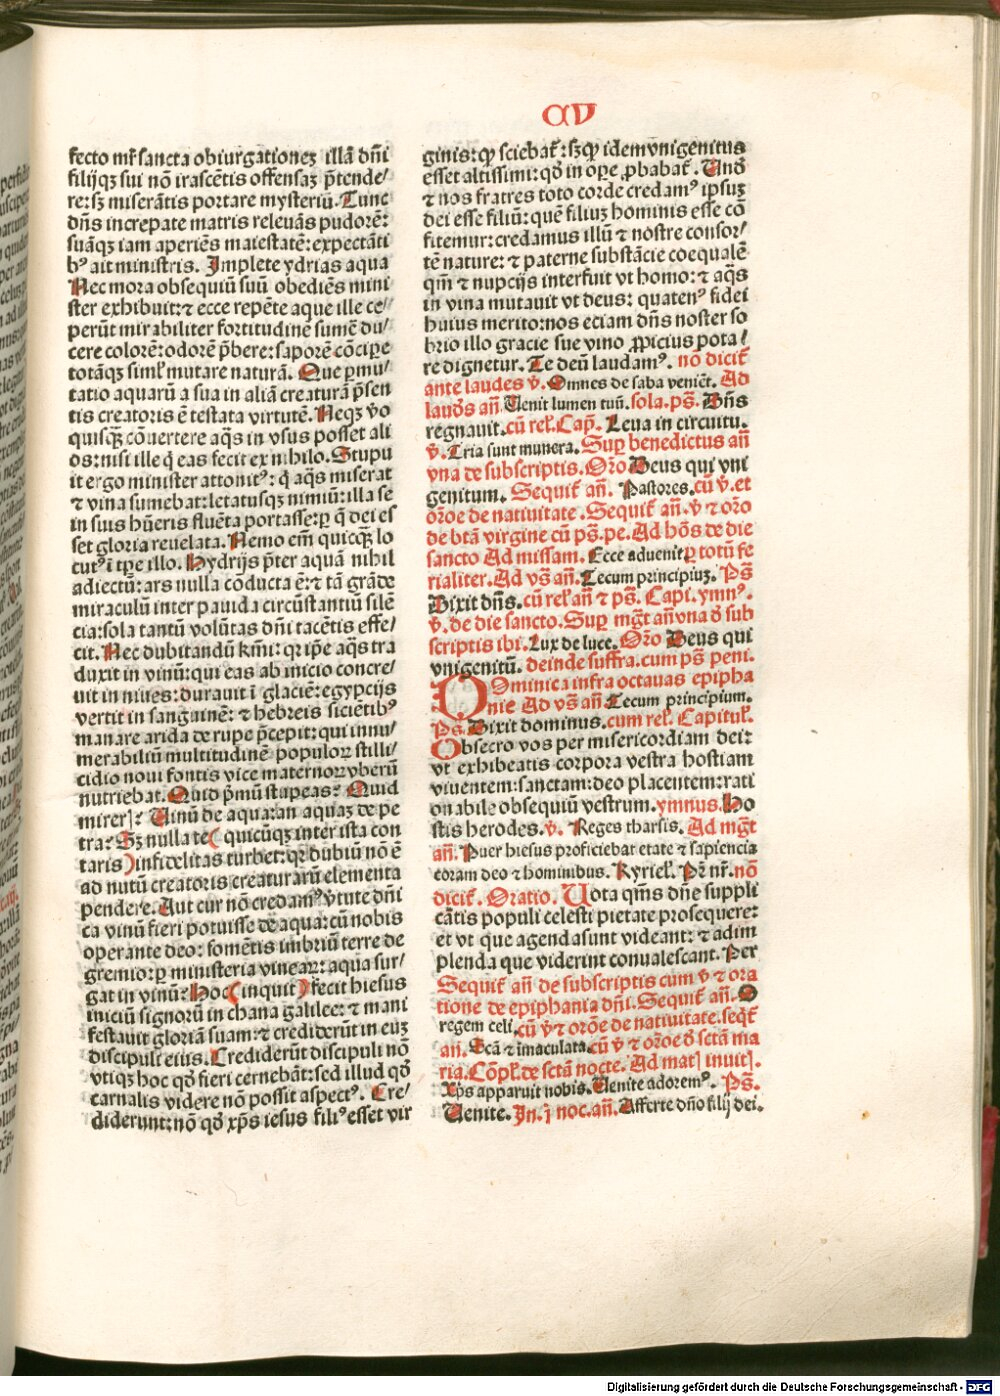 CV
fecto mr̄ sancta obiurgationeꝫ illā dn̄i
filijqꝫ sui nō irascētis offensaꝫ p̄tende/
re: sꝫ miserātis portare mysteriū. Tunc
dn̄s increpate matris releuās pudorē:
suāqꝫ iam aperiēs maiestatē: expectāti
bꝰ ait ministris. Implete ydrias aqua
Nec mora obsequiū suū obediēs mini
ster exhibuit: ⁊ ecce repēte aque ille ce/
perūt mirabiliter fortitudinē sumē du/
cere colorē: odorē p̄bere: saporē cōcipe
totāqꝫ siml' mutare naturā. Que ꝑmu/
tatio aquarū a sua in aliā creaturā p̄sen
tis creatoris ē testata virtutē. Neqꝫ v̓o
quisqꝫ cōuertere aq̄s in vsus posset ali
os: nisi ille q̄ eas fecit ex nihilo. Stupu
it ergo minister attonitꝰ: q̄ aq̄s miserat
⁊ vina sumebat: letatusqꝫ nimiū: illa se
in suis hūeris fluēta portasse: ꝑ q̄ dei es
set gloria reuelata. Nemo em̄ quicqꝫ lo
cutꝰ ī tp̄e illo. Hydrijs p̄ter aquā nihil
adiectū: ars nulla cōducta ē: ⁊ tā grāde
miraculū inter pauida circūstantiū silē
cia: sola tantū volūtas dn̄i tacētis effe/
cit. Nec dubitandū km̄i: qr ip̄e aq̄s tra
duxit in vinū: qui eas ab inicio concre/
uit in niues: durauit ī glaciē: egypcijs
vertit in sanguinē: ⁊ hebreis siciētibꝰ
manare arida de rupe p̄cepit: qui innu/
merabiliū multitudinē populoꝝ stilli/
cidio noui fontis vice maternoꝝ vberū
nutriebat. Quid p̄mū stupeas? Quid
mirer]? Uinū de aqua: an aquaꝫ de pe
tra? Sꝫ nulla te (quicūqꝫ inter ista con
taris) infidelitas turbet: qr dubiū nō ē
ad nutū creatoris creaturarū elementa
pendere. Aut cur nō credamꝰ v̓tute dn̄i
ca vinū fieri potuisse de aqua: cū nobis
operante deo: fomētis imbriū terre de
gremio: ꝑ ministeria vineaꝝ: aqua sur/
gat in vinū? Hoc (inquit) fecit hiesus
iniciū signorū in chana galilee: ⁊ mani
festauit gloriā suam: ⁊ crediderūt in euꝫ
discipuli eius. Crediderūt discipuli nō
vtiqꝫ hoc qd̓ fieri cernebāt: sed illud qd̓
carnalis videre nō possit aspectꝰ. Cre/
diderunt: nō qd̓ xp̄s iesus filiꝰ esset vir
ginis: qꝫ sciebāt: sꝫ qꝫ idem vnigenitus
esset altissimi: qd̓ in ope ꝓbabat. Und̓
⁊ nos fratres toto corde credamꝰ ipsuꝫ
dei esse filiū: quē filiuꝫ hominis esse cō
fitemur: credamus illū ⁊ nostre consor/
tē nature: ⁊ paterne substācie coequalē
qm̄ ⁊ nupcijs interfuit vt homo: ⁊ aq̄s
in vina mutauit vt deus: quatenꝰ fidei
huius merito: nos eciam dn̄s noster so
brio illo gracie sue vino ꝓpicius pota/
re dignetur. Te deū laudamꝰ. nō dicit̄
ante laudes v̄. Omnes de saba veniēt. Ad
laud̓s an̄. Uenit lumen tuū. sola. ps̄. Dn̄s
regnauit. cū rel'. Cap̄. Leua in circuitu.
v̄. Tria sunt munera. Suꝑ benedictus an̄
vna de subscriptis. Or̄o Deus qui vni
genitum. Sequit̄ an̄. Pastores. cū v̄. et
or̄oe de natiuitate. Sequit̄ an̄. v̄ ⁊ or̄o
de btā virgine cū ps̄. pe. Ad ho̓s de die
sancto Ad missam. Ecce aduenit ꝑ totū fe
rialiter. Ad vs̄ an̄. Tecum principiuꝫ. Ps̄
Dixit dn̄s. cū rel' an̄ ⁊ ps̄. Capi. ymnꝰ.
v̄. de die sancto. Suꝑ mg̓t an̄ vna d̓ sub
scriptis ibi. Lux de luce. Or̄o Deus qui
vnigenitū. deinde suffra. cum ps̄ peni.
Dominica infra octauas epipha
nie Ad vs̄ an̄. Tecum principium.
Ps̄. Dixit dominus. cum rel'. Capitul'.
Obsecro vos per misericordiam dei:
vt exhibeatis corpora vestra hostiam
viuentem: sanctam: deo placentem: rati
onabile obsequiū vestrum. ymnus. Ho
stis herodes. v̄. Reges tharsis. Ad mg̓t
an̄. Puer hiesus proficiebat etate ⁊ sapiencia
coram deo ⁊ hominibus. Kyriel'. Pr̄ nr̄. nō
dicit̄. Oratio. Uota qm̄s dn̄e suppli
cātis populi celesti pietate prosequere:
et vt que agenda sunt videant: ⁊ ad im
plenda que viderint conualescant. Per
Sequit̄ an̄ de subscriptis cum v̄ ⁊ ora
tione de epiphania dn̄i. Sequit̄ an̄. O
regem celi. cū v̄ ⁊ or̄oe de natiuitate. seqt̄
an̄. Ecā ⁊ īmaculata. cū v̄ ⁊ or̄oe d̓ sctā ma
ria. Cōpl'. de sctā nocte. Ad mat] inuit].
Xp̄s apparuit nobis. Uenite adoremꝰ. Ps̄.
Uenite. In. j noc. an̄. Afferte dn̄o filij dei.
Digitalisierung gefördert durch die Deutsche Forschungsgemeinschaft - DFG